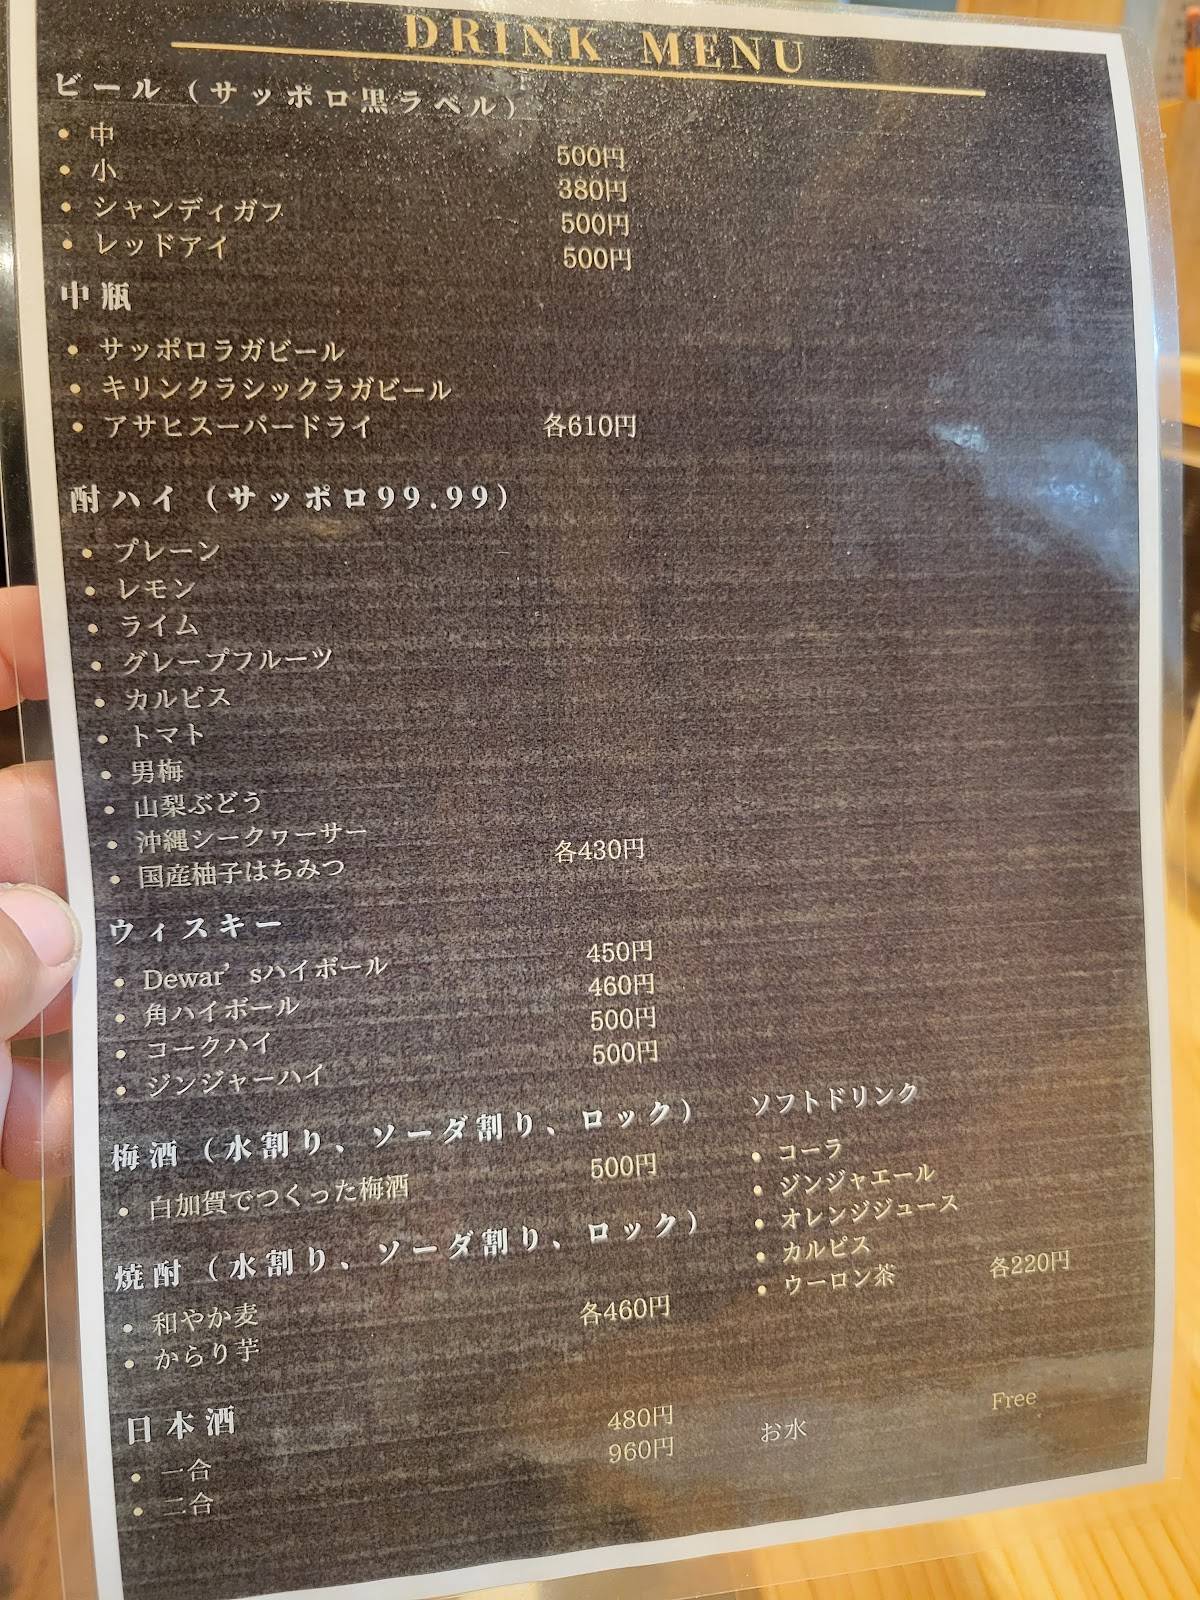 DRINK MENU
ビール（サッポロ黒ラベル）
• 中 500円
• 小 380円
• シャンディガフ 500円
• レッドアイ 500円
中瓶
• サッポロラガビール
• キリンクラシックラガビール
• アサヒスーパードライ 各610円
酎ハイ（サッポロ99.99）
• プレーン
• レモン
• ライム
• グレープフルーツ
• カルピス
• トマト
• 男梅
• 山梨ぶどう
• 沖縄シークヮーサー
• 国産柚子はちみつ 各430円
ウィスキー
• Dewar’sハイボール 450円
• 角ハイボール 460円
• コークハイ 500円
• ジンジャーハイ 500円
梅酒（水割り、ソーダ割り、ロック）
• 白加賀でつくった梅酒 500円
焼酎（水割り、ソーダ割り、ロック）
• 和やか麦 各460円
• からり芋
日本酒
• 一合 480円
• 二合 960円
ソフトドリンク
• コーラ
• ジンジャエール
• オレンジジュース
• カルピス
• ウーロン茶 各220円
お水 Free